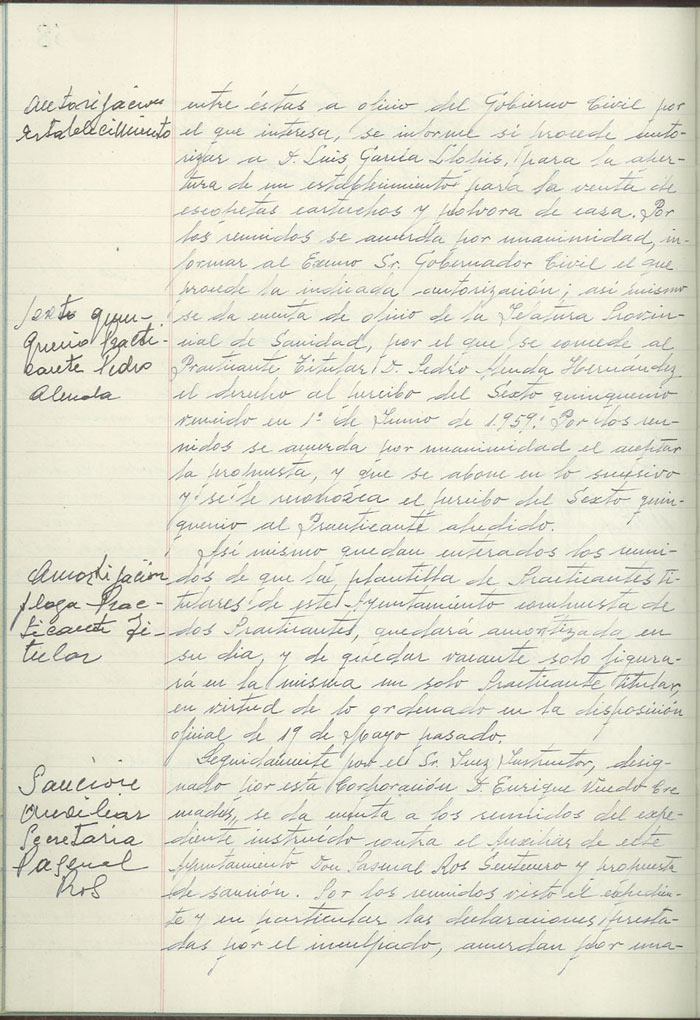 Autorización
establecimiento
entre éstas a oficio del Gobierno Civil por
el que interesa, se informe si procede auto-
rizar a D. Luis García Llopis, para la aper-
tura de un establecimiento para la venta de
escopetas cartuchos y pólvora de casa. Por
los reunidos se acuerda por unanimidad, in-
formar al Excmo Sr. Gobernador Civil el que
procede la indicada autorización; así mismo
Sexto quin-
quenio Practi-
cante Pedro
Alenda
se da cuenta de oficio de la Jefatura Provin-
cial de Sanidad, por el que se concede al
Practicante Titular D. Pedro Alenda Hernández
el derecho al percibo del Sexto quinquenio
vencido en 1º de Junio de 1.959. Por los reu-
nidos se acuerda por unanimidad el aceptar
la propuesta, y que se abone en lo sucesivo
y se le reconozca el percibo del Sexto quin-
quenio al Practicante aludido.
Amortización
plaza Prac-
ticante Ti-
tular
Así mismo quedan enterados los reuni-
dos de que la plantilla de Practicantes Ti-
tulares de este Ayuntamiento compuesta de
dos Practicantes, quedará amortizada en
su dia, y de quedar vacante solo figura-
rá en la misma un solo Practicante Titular,
en virtud de lo ordenado en la disposición
oficial de 19 de Mayo pasado.
Sanción
Auxiliar
Secretaria
Pascual
Ros
Seguidamente por el Sr. Juez Instructor, desig-
nado por esta Corporación D. Enrique Cre-
mades, se da cuenta a los reunidos del expe-
diente instruído contra el Auxiliar de este
Ayuntamiento Don Pascual Ros y propuesta
de sanción. Por los reunidos visto el expedien-
te y en particular las declaraciones presta-
das por el inculpado, acuerdan por una-